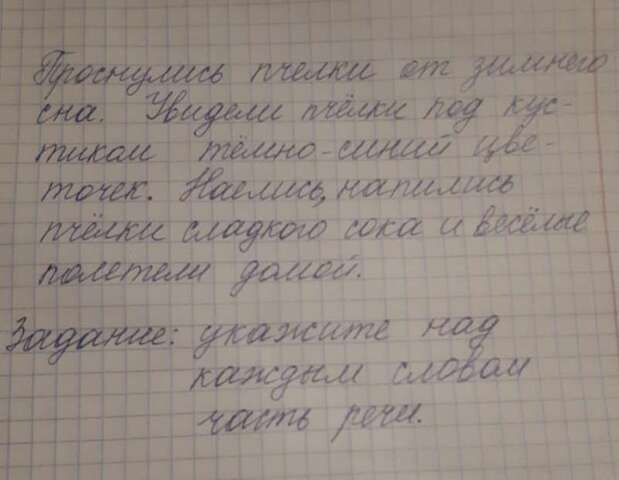 Проснулись пчелки от зимнего
сна. Увидели пчёлки под кус-
тиком тёмно-синий цве-
точек. Наелись, напились
пчёлки сладкого сока и весёлые
полетели домой.
Задание: укажите над
каждым словом
часть речи.